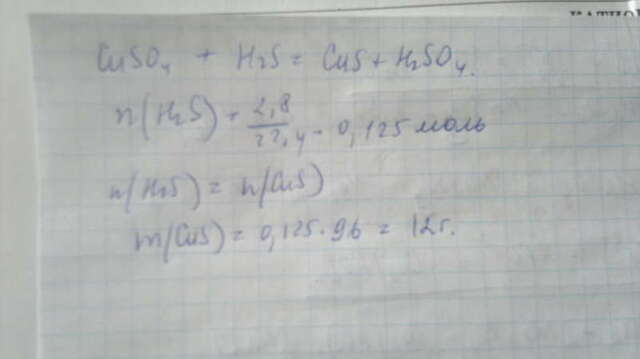 КАТИО
CuSO₄ + H₂S = CuS + H₂SO₄.
n(H₂S) = 2,8/22,4 = 0,125 моль
n(H₂S) = n(CuS)
m(CuS) = 0,125 · 96 = 12г.